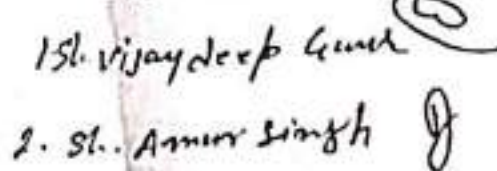 1 Sh. Vijaydeep
2. Sh. Amar Singh